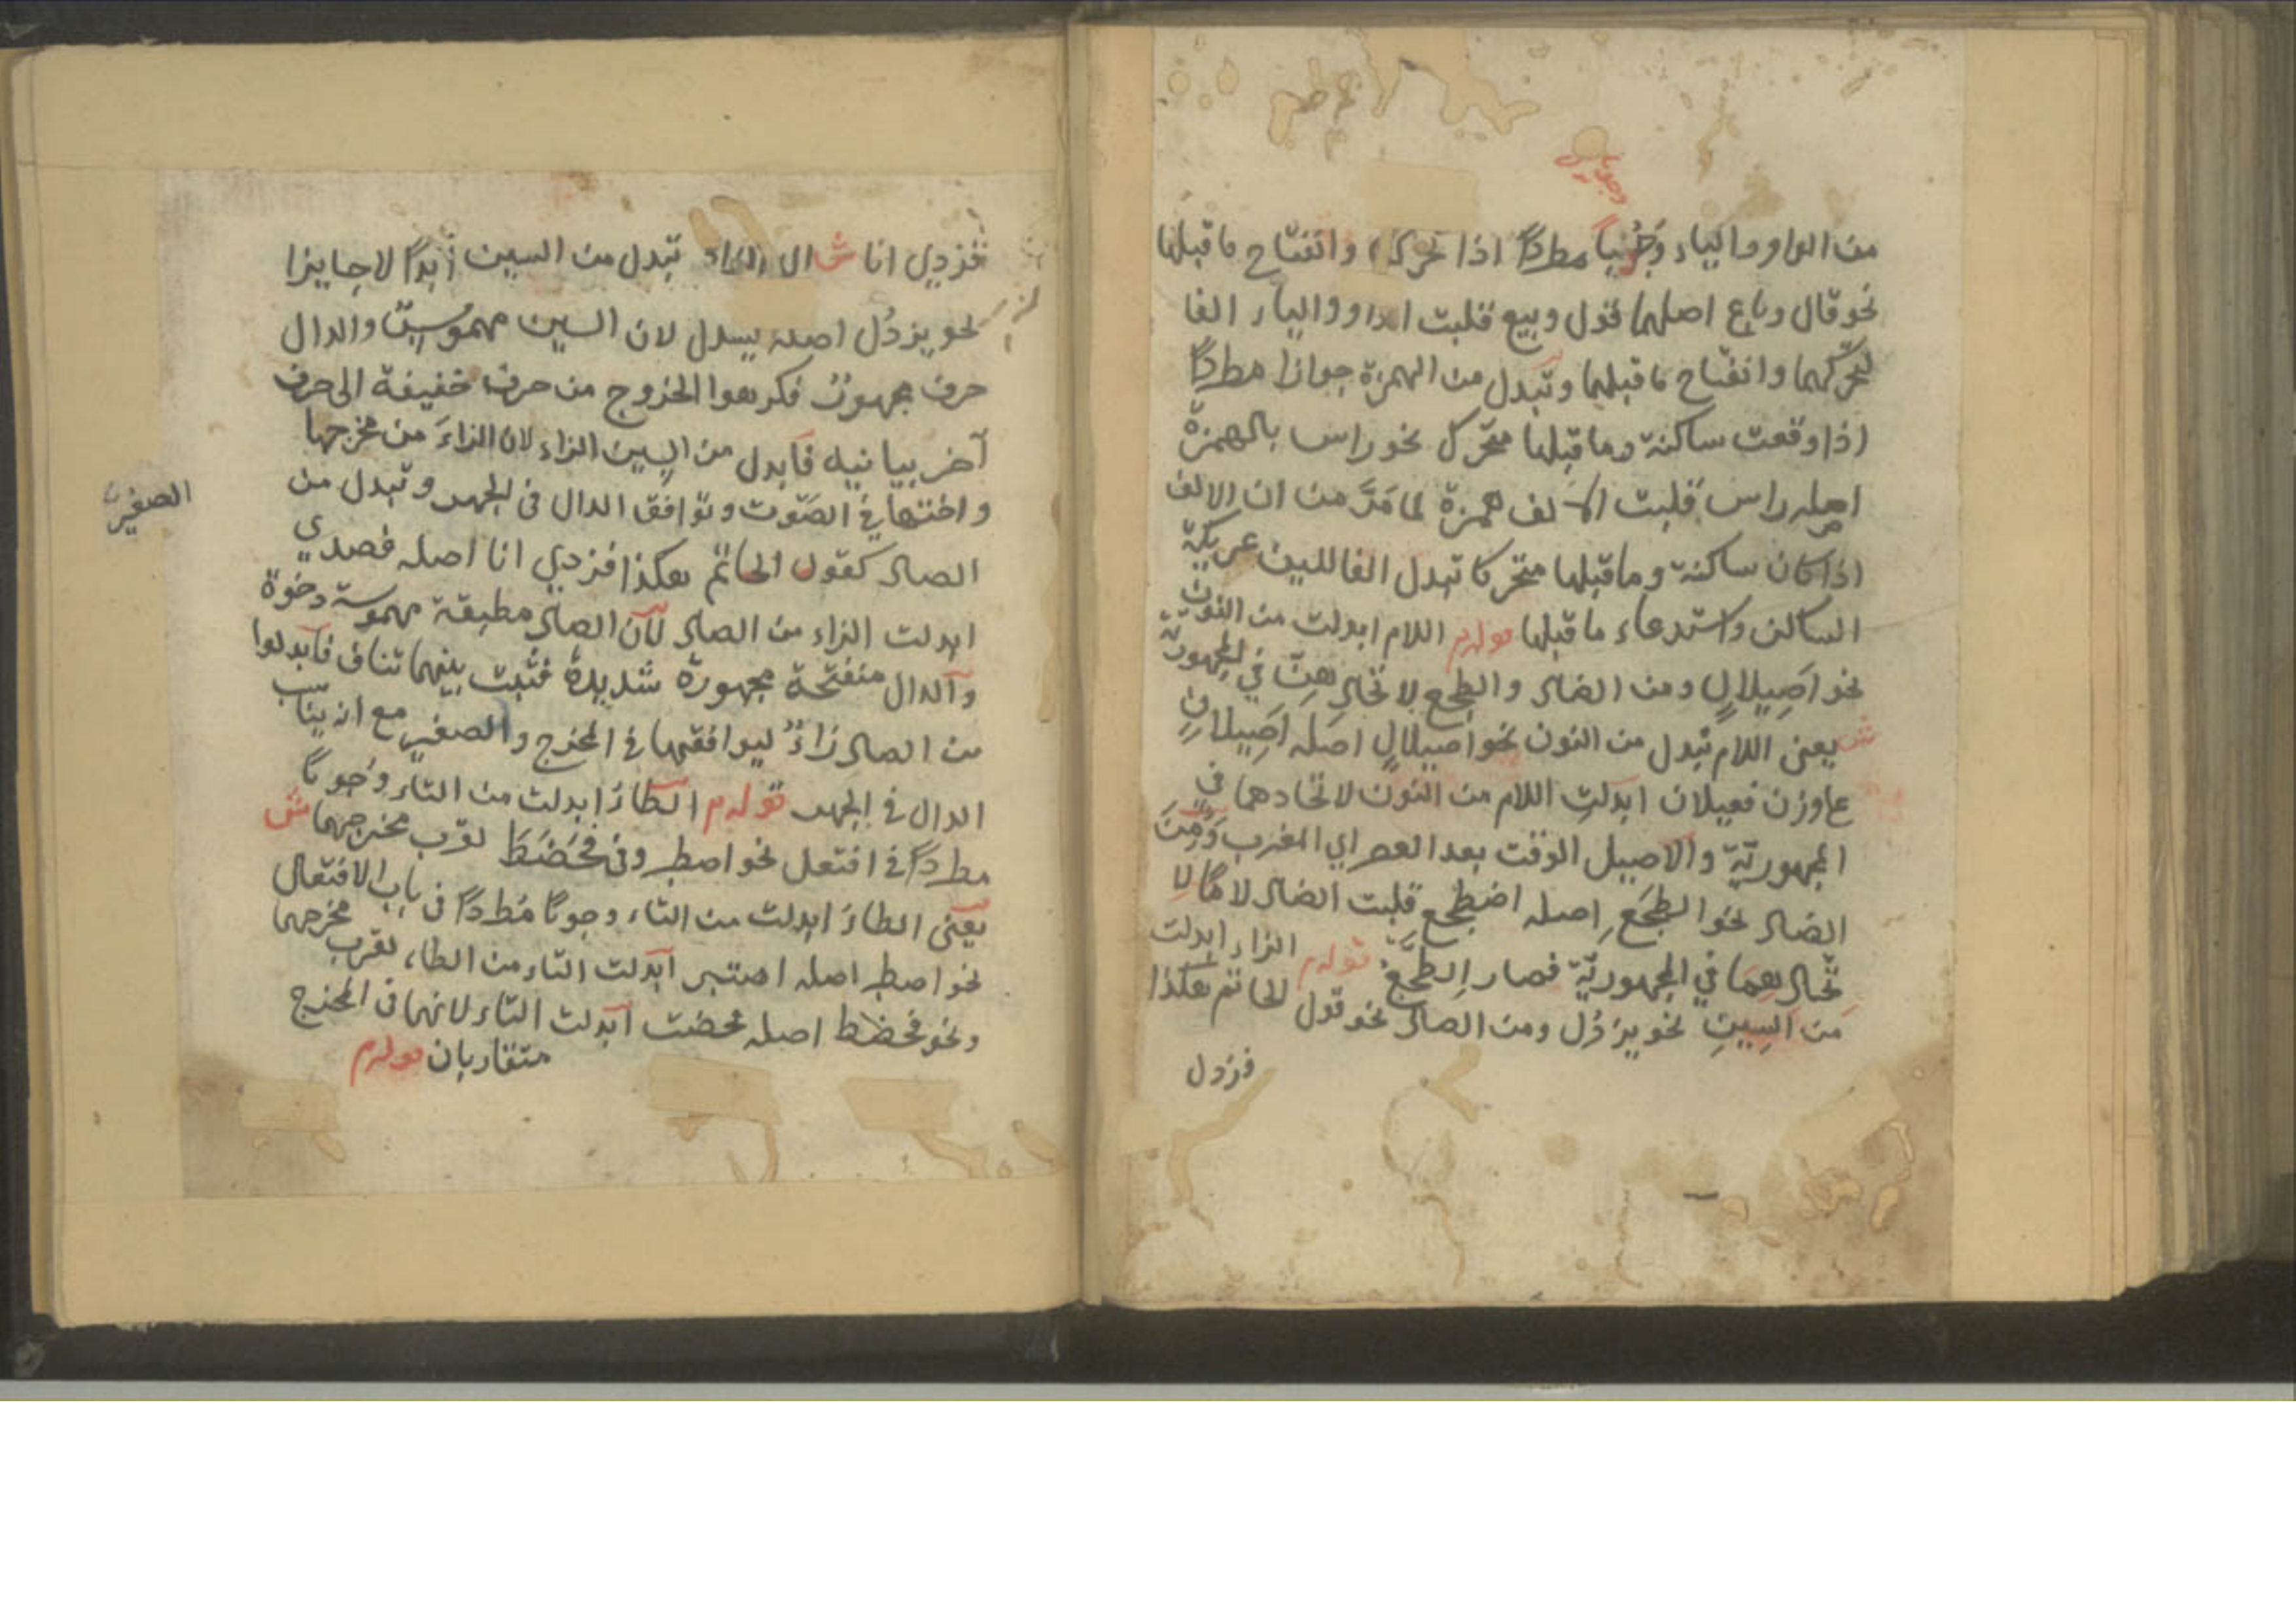 وجوبا
من الواو والياء وَجُوباً مطردًا اذا تحركتا وانفتاح ما قبلها
نحو قال وباع اصلهما قول وبيع قلبت الواو والياء الفا
لتحركهما وانفتاح ما قبلهما وتبدل من الهمزة جوازا مطردًا
اذا وقعت ساكنة وما قبلها متحرك نحو راس بالهمزة
اصله راس قلبت الالف همزة لما مَرَّ من ان الالف
اذا كان ساكنة وما قبلها متحركا تبدل الفا للين عريكة
الساكن واستدعاء ما قبلها قوله اللام ابدلت من النون
نحو اصيلالٍ ومن الضاد والطجع لاتحادهنّ في المجهوريّة
ش يعنى اللام تبدل من النون نحو اصيلالٍ اصله اصيلانٍ
على وزن فعيلان ابدلتِ اللام من النون لاتحادهما في
المجهوريّة والاصيل الوقت بعد العصر اي المغرب وَمِنَ
الضاد نحو الطجَعَ اصله اضطجع قلبت الضاد لاما لا
تحادهما في المجهوريّة فصار اِلطجَعَ قوله الزاء ابدلت
من السينِ نحو يزدُل ومن الصاد نحو قول الحاتم هكذا
فزدل
فزدي انا ش ال الزاء تبدل من السين ابدًا لا جايزا
نحو يزدُل اصله يسدل لان السين مهموسية والدال
حرف مجهورة فكرهوا الخروج من حرف خفيفة الى حرف
آخر بيانيه فابدل من السين الزاء لان الزاءَ من مخرجها
واختها في الصَوت وتوافق الدال فى الجهر وتبدل من
الصاد كقول الحاتم هكذا فزدي انا اصله فصدي
ابدلت الزاء من الصاد لان الصاد مطبقة مهموسة رخوة
والدال منفتحة مجهورة شديدة فثبت بينهما تناف فابدلوا
من الصاد زاءً ليوافقهما في المخرج والصفير مع انه يناسب
الدال في الجهر قوله الطاءُ ابدلت من التاء وُجوبا
مطردًا في افتعل نحو اصطبر وفى فحَصَطَ لقرب مخرجهما ش
يعنى الطاءُ ابدلت من التاء وجوبا مُطردًا فى باب الافتعال
نحو اصطبر اصله اصتبر ابدلت التاء من الطاء لقرب مخرجهما
ونحو فحصط اصله فحصت ابدلت التاء لانهما فى المخرج
متقاربان قوله
الصفير